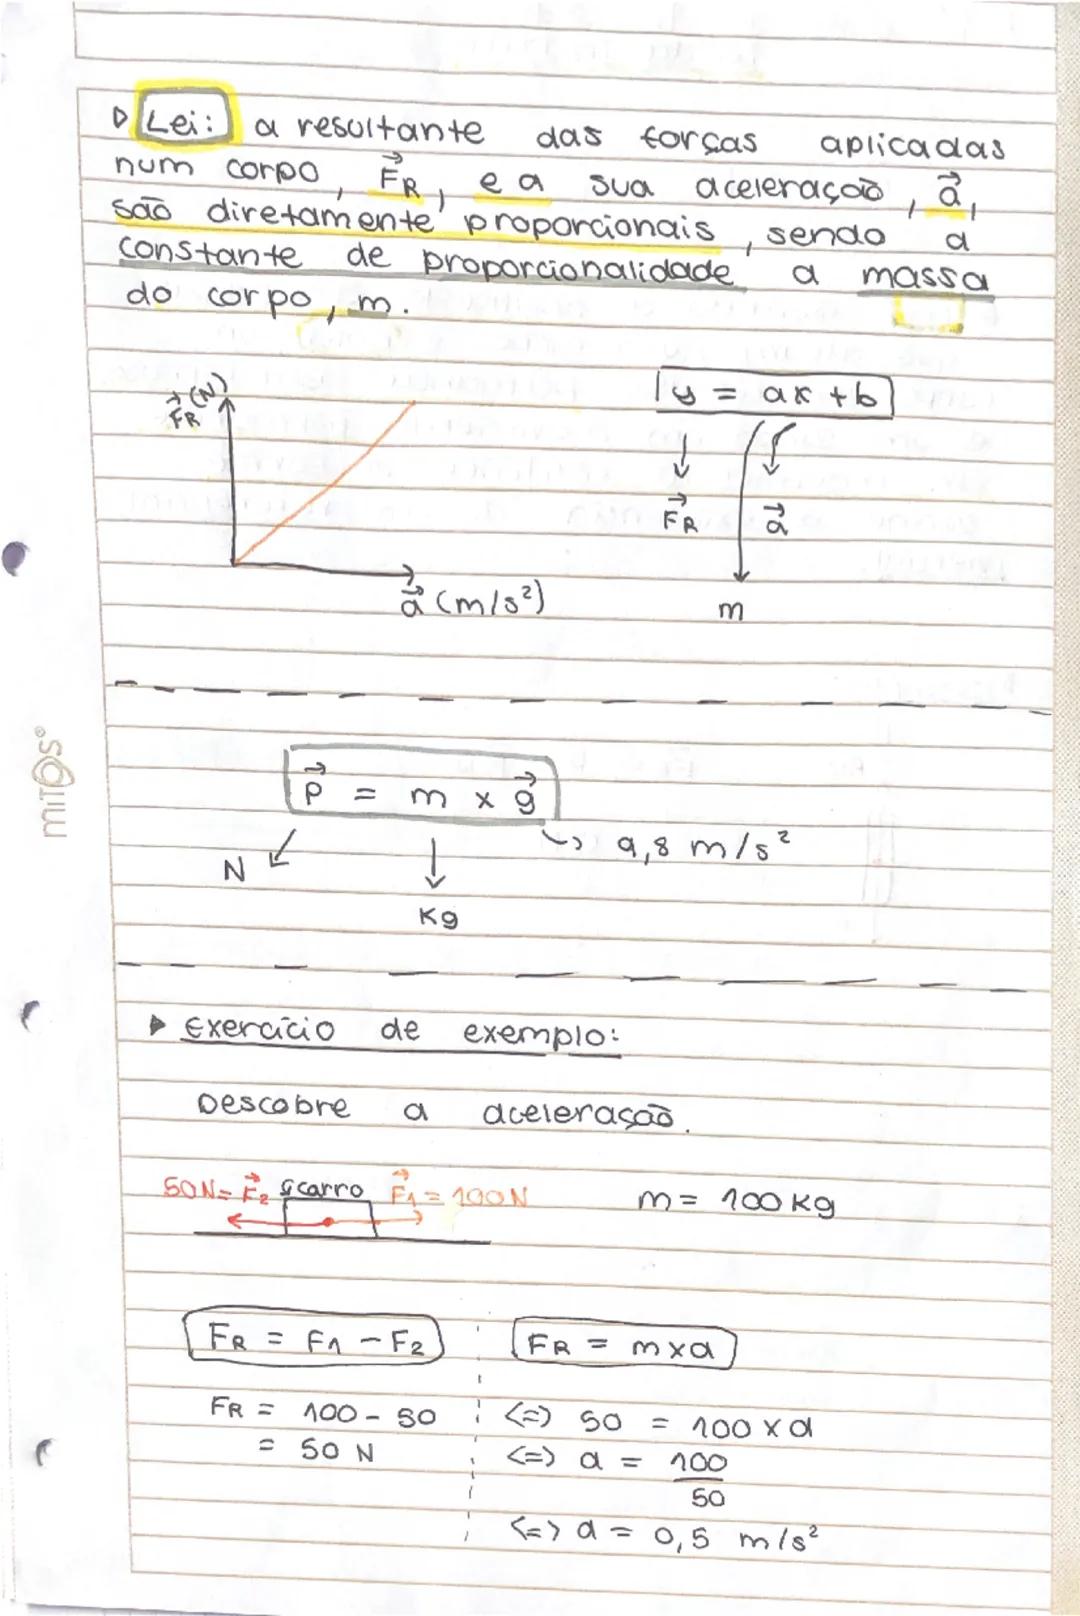 ▷ Lei: a resultante das forças aplicadas
num corpo, F⃗R, e a sua aceleração, a⃗,
são diretamente proporcionais, sendo a
constante de proporcionalidade a massa
do corpo, m.
F⃗R (N)
y = ax + b
F⃗R a⃗
a⃗ (m/s²)
m
P⃗ = m x g⃗
↳ 9,8 m/s²
N
Kg
▶ Exercício de exemplo:
Descobre a aceleração.
50N= F⃗2 carro F⃗1 = 100N m = 100Kg
FR = F1 - F2 FR = mxa
FR = 100 - 50 <=> 50 = 100 x a
= 50 N <=> a = 100
50
<=> a = 0,5 m/s²
mitos°